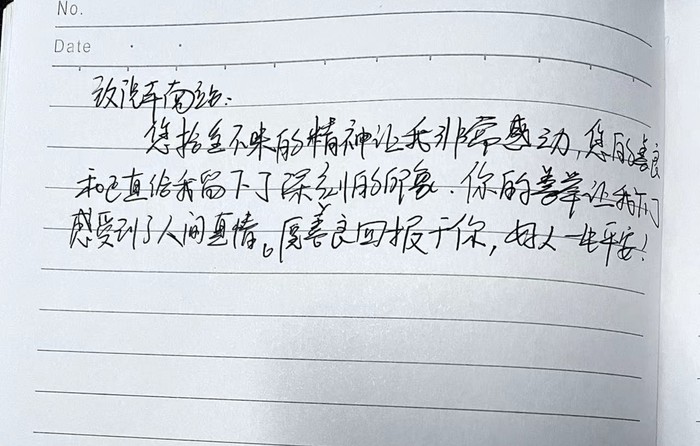 No.
Date
致汽车南站:
您拾金不昧的精神让我非常感动,您的善良
和正直给我留下了深刻的印象.你的善举让我们
感受到了人间真情。愿善良回报于你,好人一生平安!